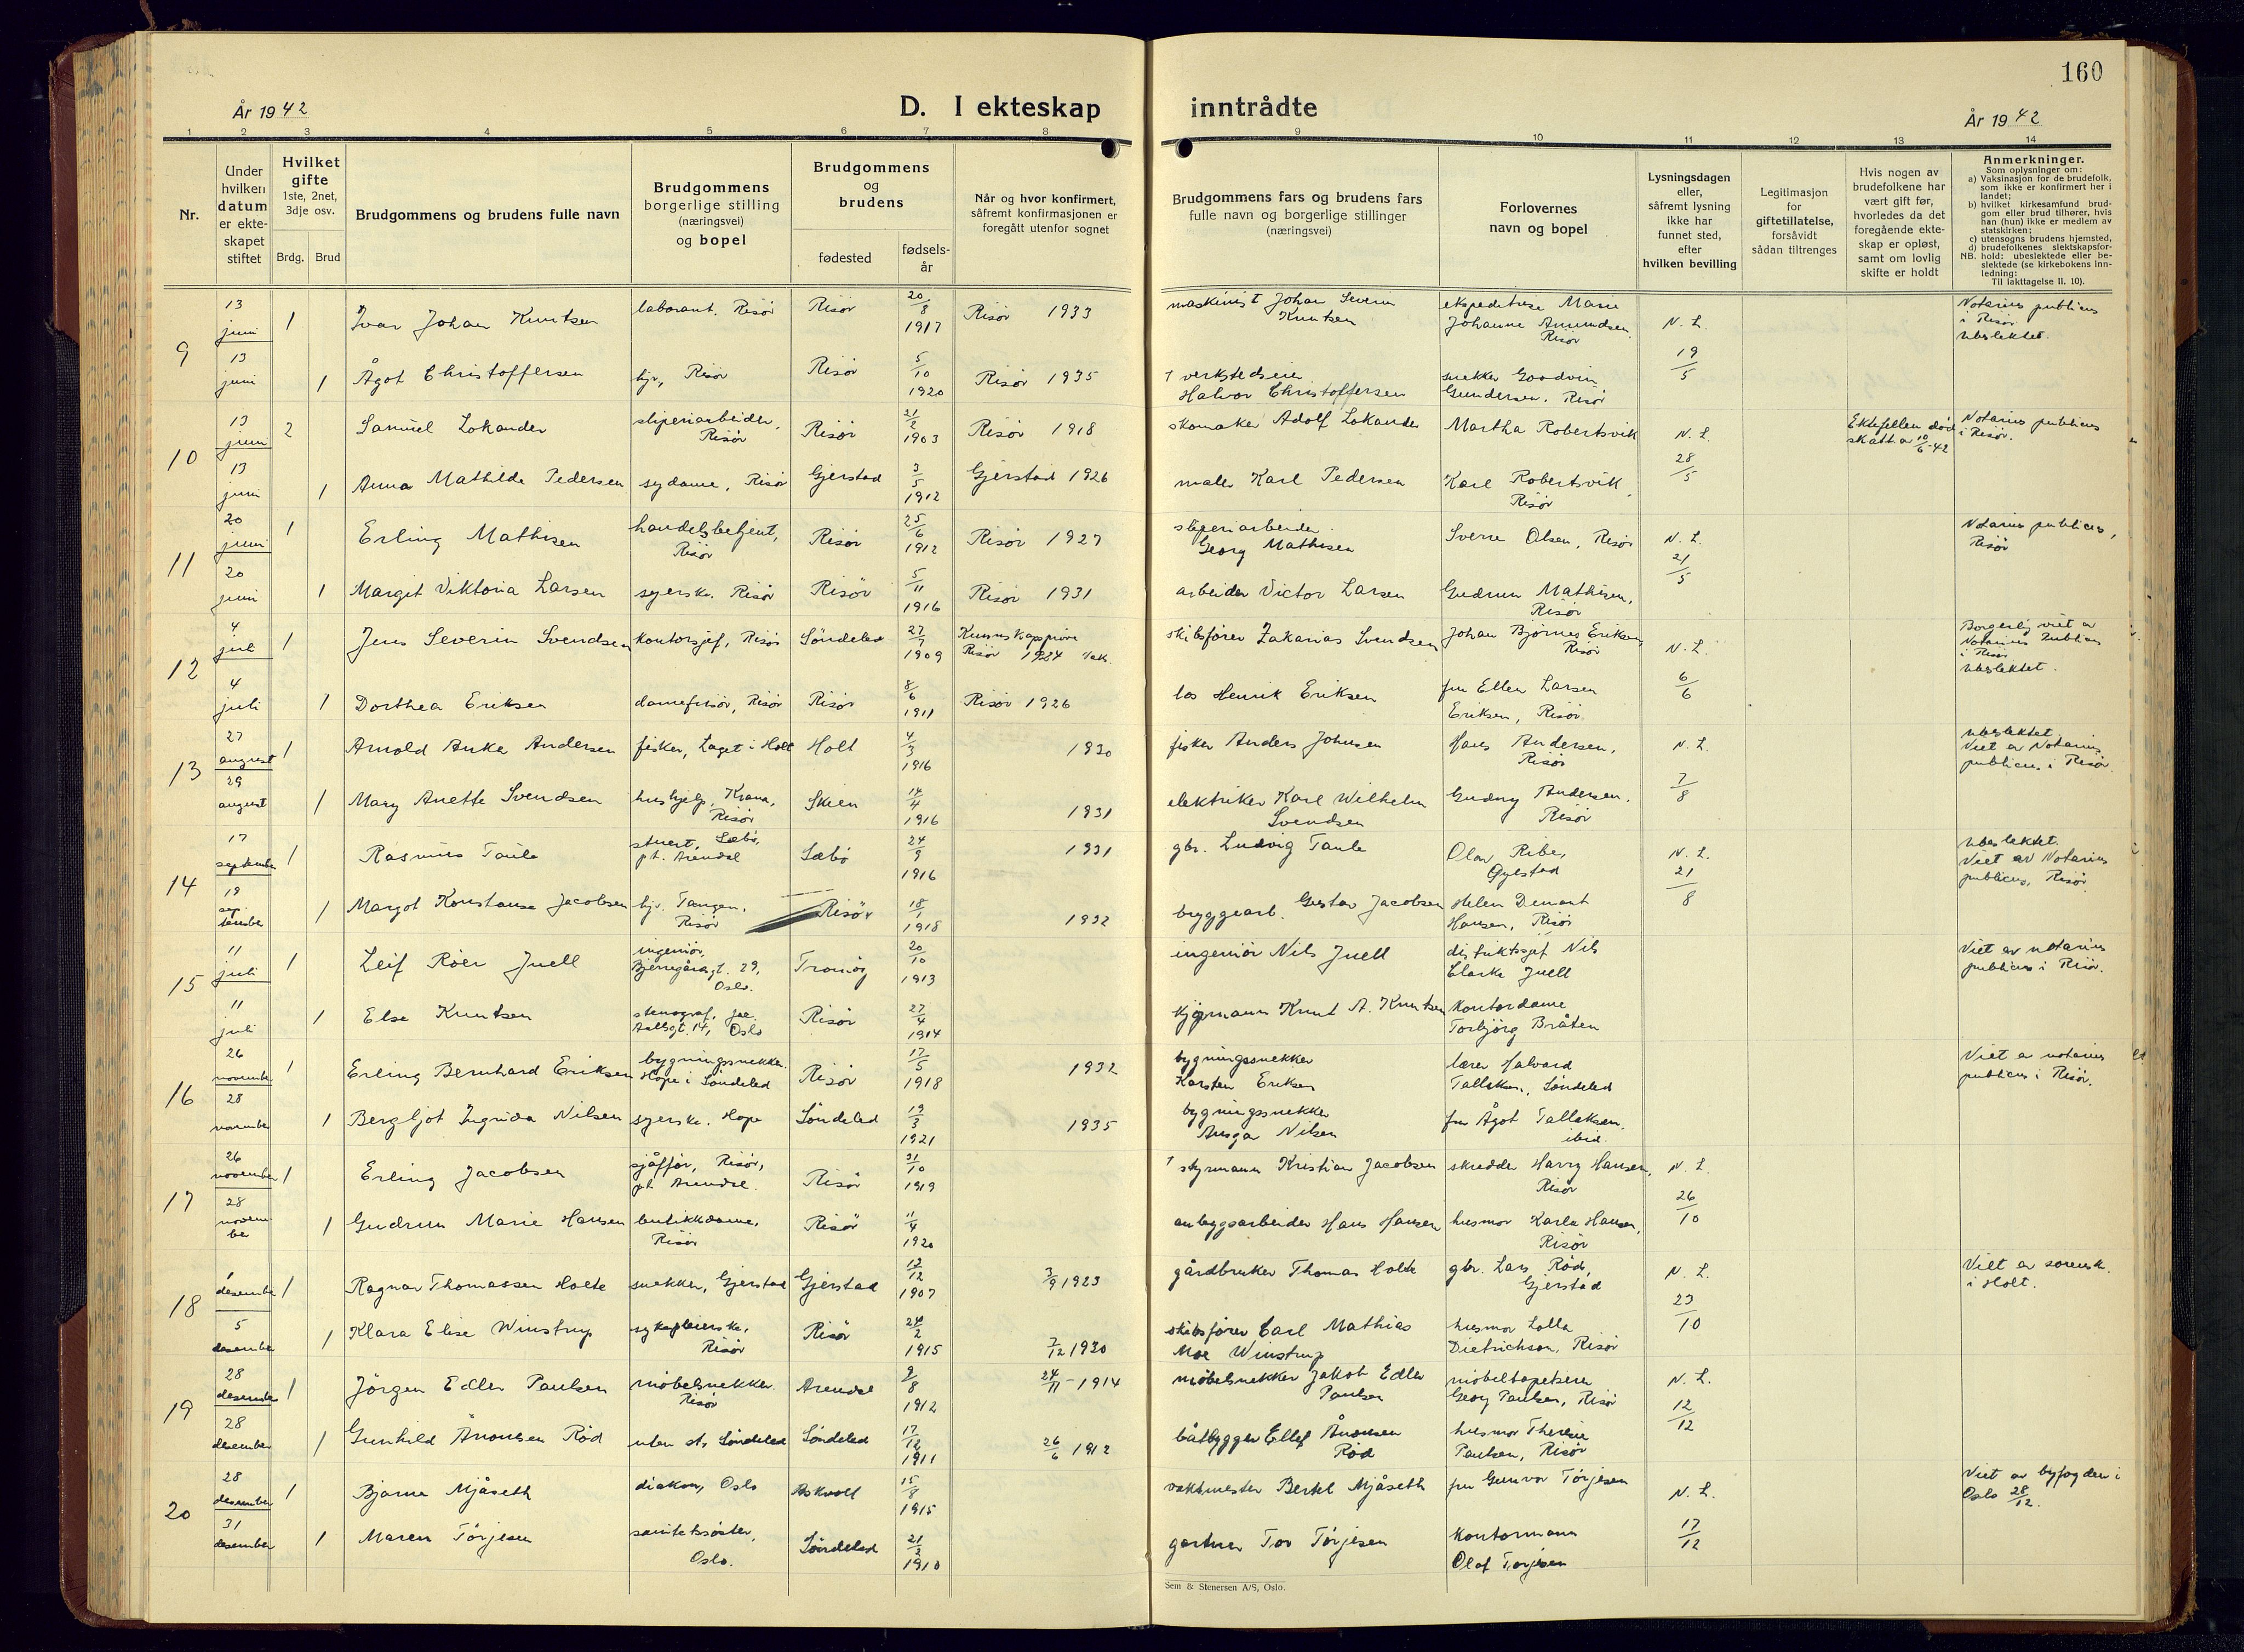 160
År 1942
D. I ekteskap inntrådte
År 1942
1 2 3 4 5 6 7 8 9 10 11 12 13 14
Nr.
Under hvilken datum er ekteskapet stiftet
Hvilket gifte
1ste, 2net, 3dje osv.
Brdg. Brud
Brudgommens og brudens fulle navn
Brudgommens borgerlige stilling (næringsvei) og bopel
Brudgommens og brudens
fødested
fødselsår
Når og hvor konfirmert, såfremt konfirmasjonen er foregått utenfor sognet
Brudgommens fars og brudens fars fulle navn og borgerlige stillinger (næringsvei)
Forlovernes navn og bopel
Lysningsdagen eller, såfremt lysning ikke har funnet sted, efter hvilken bevilling
Legitimasjon for giftetillatelse, forsåvidt sådan tiltrenges
Hvis nogen av brudefolkene har vært gift før, hvorledes da det foregående ekteskap er opløst, samt om lovlig skifte er holdt
Anmerkninger.
Som oplysninger om:
a) Vaksinasjon for de brudefolk, som ikke er konfirmert her i landet;
b) hvilket kirkesamfund brudgom eller brud tilhører, hvis han (hun) ikke er medlem av statskirken;
c) utensogns brudens hjemsted,
d) brudefolkenes slektskapsforhold: ubeslektede eller beslektede (se kirkebokens innledning:
NB.
Til iakttagelse II. 10).
9
13 juni 1 Ivar Johan Knutsen laborant. Risør Risør 20/8 1917 Risør 1933 maskinist Johan Severin Knutsen ekspeditrise Marie Johanne Amundsen. Risør N. L. 19/5 Notarius publicus i Risør ubeslektet.
13 juni 1 Ågot Christoffersen hjv, Risør Risør 5/10 1920 Risør 1935 † verkstedseier Halvor Christoffersen snekker Goodvin Gundersen. Risør
10
13 juni 2 Samuel Lokander sliperiarbeider, Risør Risør 21/2 1903 Risør 1918 skomaker Adolf Lokander Martha Robertsvik N. L. 28/5 Ektefellen død skatt a 10/6-42 Notarius publicus i Risør.
13 juni 1 Anna Mathilde Pedersen sydame, Risør Gjerstad 3/5 1912 Gjerstad 1926 maler Karl Pedersen Karl Robertsvik, Risør
11
20 juni 1 Erling Mathisen handelsbetjent, Risør Risør 25/6 1912 Risør 1927 sliperiarbeider Georg Mathisen Sverre Olsen, Risør N. L. 21/5 Notarius publicus, Risør
20 juni 1 Margit Viktoria Larsen syerske. Risør Risør 5/11 1916 Risør 1931 arbeider Victor Larsen Gudrun Mathisen, Risør
12
4 juli 1 Jens Severin Svendsen kontorsjef, Risør Søndeled 27/7 1909 Kunnskapsprøve Risør skibsfører Zakarias Svendsen Johan Bjørnes Eriksen, Risør N. L. 6/6 Borgerlig viet av Notarius Publicus i Risør ubeslektet.
4 juli 1 Dorthea Eriksen damefrisør, Risør Risør 8/6 1911 Risør 1926 los Henrik Eriksen fru Ellen Larsen Eriksen, Risør.
13
27 august 1 Arnold Anke Andersen fisker, Laget i Holt Holt 4/3 1916 1930 fisker Anders Johnsen Hans Andersen, Risør N. L. 7/8 ubeslektet. Viet av Notarius publicus i Risør.
29 august 1 Mary Anette Svendsen hushjelp, Krana, Risør Skien 14/4 1916 1931 elektriker Karl Wilhelm Svendsen Gudny Andersen, Risør
14
17 september 1 Rasmus Taule stuert, Sæbø, pt. Arendal Sæbø 24/9 1916 1931 gbr. Ludvig Taule Olav Ribe, Øyestad N. L. 21/8 ubeslektet. Viet av Notarius publicus, Risør
19 september 1 Margot Konstanse Jacobsen hjv. Tangen, Risør Risør 18/1 1918 1932 byggearb. Gustav Jacobsen Helen Hansen, Risør
15
11 juli 1 Leif Röer Juell ingeniør, Bjerregårdsgt. 29, Oslo. Tromøy 20/10 1913 ingeniør Nils Juell distriktssjef Nils Clarke Juell Viet av notarius publicus i Risør.
11 juli 1 Else Knutsen stenograf, Jac. Aallsgt. 14, Oslo Risør 27/4 1914 kjøpmann Knut A. Knutsen kontordame Torbjørg Bråten
16
26 november 1 Erling Bernhard Eriksen bygningssnekker. Hope i Søndeled Risør 17/5 1918 1932 bygningssnekker Karsten Eriksen lærer Halvard Tallaksen, Søndeled Viet av notarius publicus i Risør.
28 november 1 Bergljot Ingrida Nilsen syerske. Hope Søndeled 19/3 1921 1935 bygningssnekker Ansgar Nilsen fru Ågot Tallaksen. ibid.
17
26 november 1 Erling Jacobsen sjåffør, Risør, pt. Arendal. Risør 31/10 1919 † styrmann Kristian Jacobsen skredder Harry Hansen, Risør N. L. 26/10
28 november 1 Gudrun Marie Hansen butikkdame, Risør Risør 11/4 1920 anleggsarbeider Hans Hansen husmor Karla Hansen, Risør
18
1 desember 1 Ragnar Thomassen Holte snekker, Gjerstad Gjerstad 12/12 1907 3/9 1923 gårdbruker Thomas Holte gbr. Lars Rød, Gjerstad N. L. 23/10 Viet av sorensk. i Holt.
5 desember 1 Klara Elise Winstrup sykepleierske, Risør Risør 24/2 1915 7/12 1930 skibsfører Carl Mathias Moe Winstrup husmor Lolla Dietrichson, Risør
19
28 desember 1 Jörgen Edler Paulsen møbelsnekker. Risør Arendal 9/8 1912 24/11-1914 møbelsnekker Jakob Edler Paulsen møbeltapetserer Georg Paulsen, Risør N. L. 12/12
28 desember 1 Gunhild Ånonsen Rød uten st, Søndeled Søndeled 17/12 1911 26/6 1912 båtbygger Ellef Ånonsen Rød husmor Therese Paulsen, Risør
20
28 desember 1 Bjarne Mjåseth diakon, Oslo Askvoll 15/8 1915 vaktmester Bertel Mjåseth fru Gunvor Tørjesen N. L. 17/12 Viet av byfogden i Oslo 28/12.
31 desember 1 Maren Tørjesen sanitetssøster, Oslo. Søndeled 21/2 1910 gartner Tor Tørjesen kontormann Olaf Tørjesen
Sem & Stenersen A/S, Oslo.